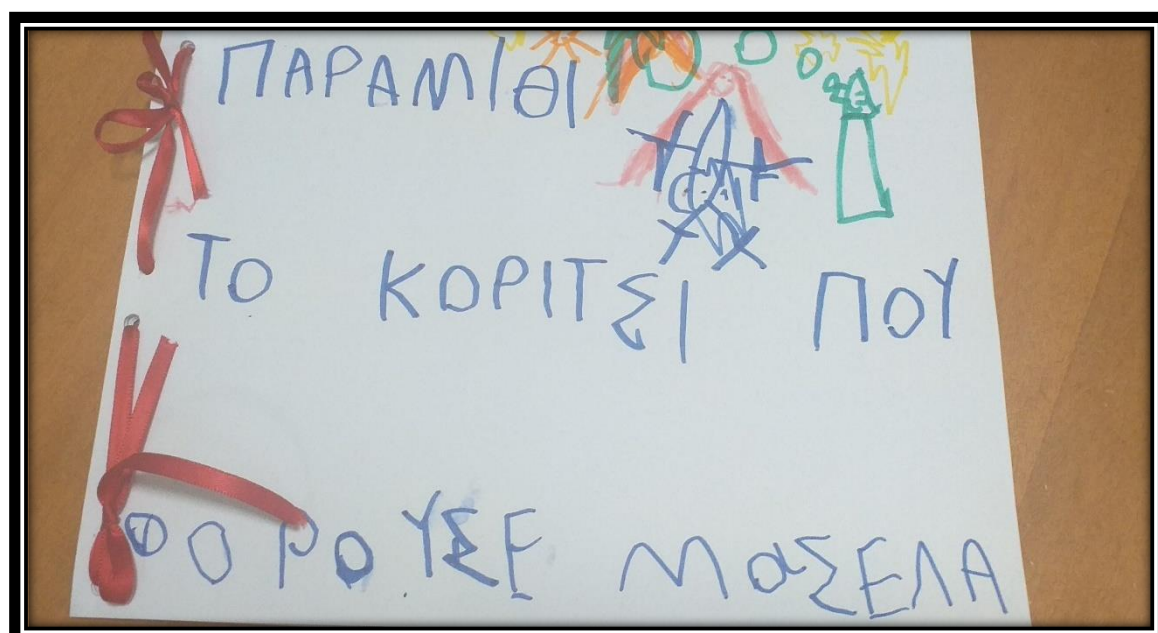 ΠΑΡΑΜΙΘΙ
ΤΟ ΚΟΡΙΤΣΙ ΠΟΥ
ΦΟΡΟΥΣΕ ΜαΣΕΛΑ